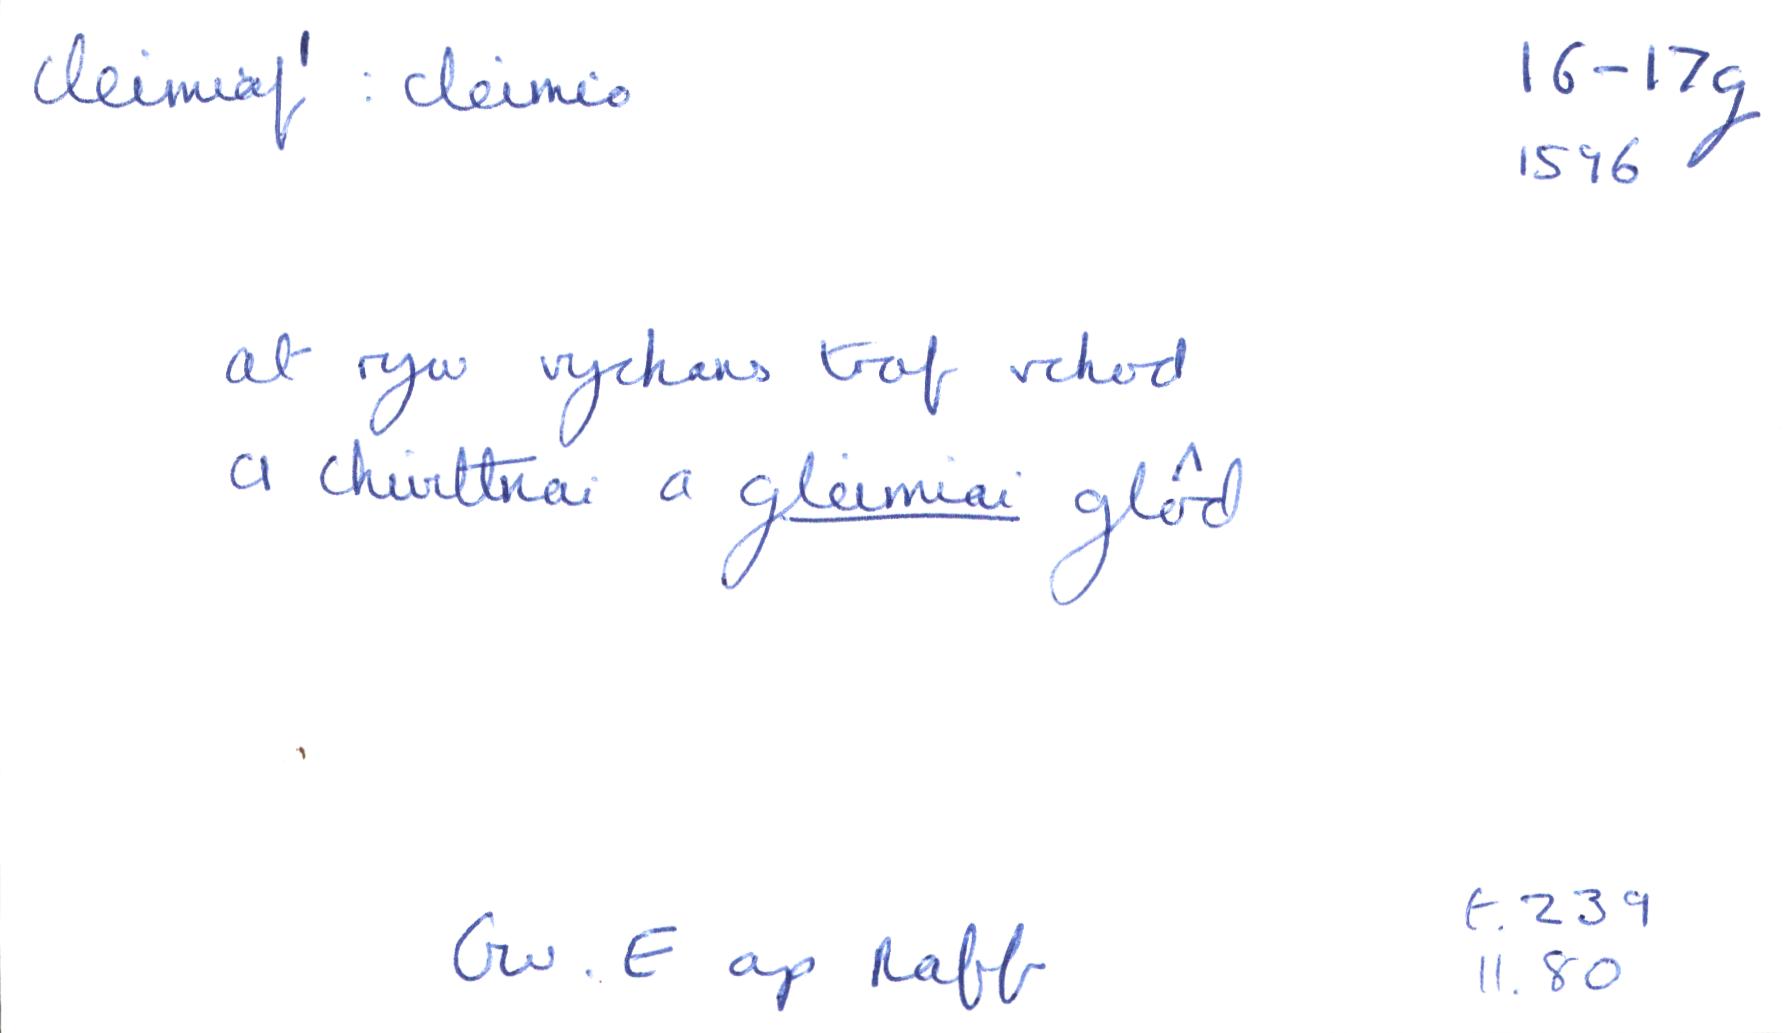 cleimiaf¹ : cleimio 16-17g
1596
at ryw vychans traf vchod
a chwrttnai a gleimiai glôd
Gw. E ap Raff
t. 239
11. 80